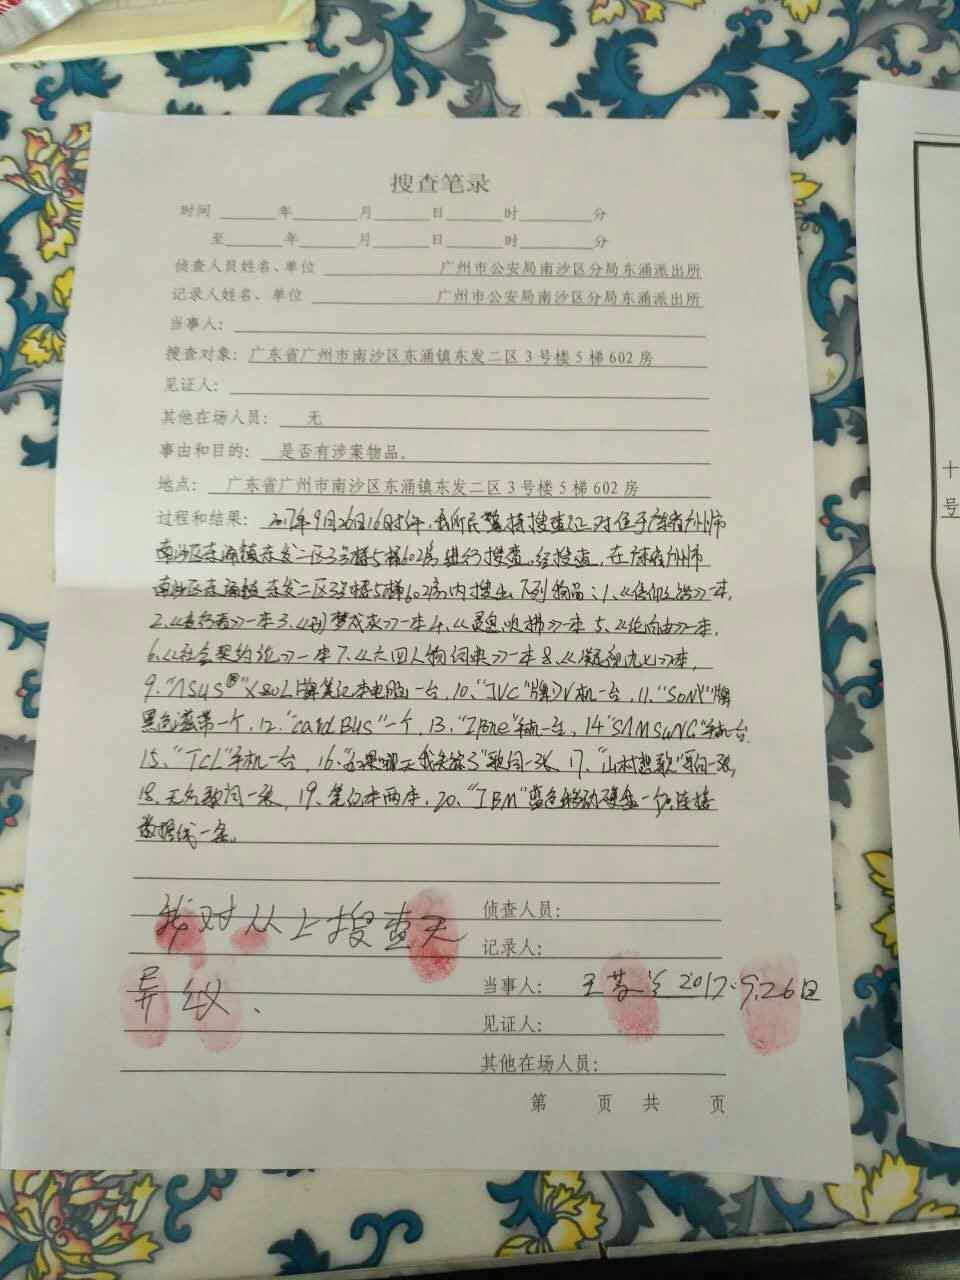 搜查笔录
时间 年 月 日 时 分
至 年 月 日 时 分
侦查人员姓名、单位 广州市公安局南沙区分局东涌派出所
记录人姓名、单位 广州市公安局南沙区分局东涌派出所
当事人：
搜查对象：广东省广州市南沙区东涌镇东发二区3号楼5梯602房
见证人：
其他在场人员： 无
事由和目的： 是否有涉案物品。
地点： 广东省广州市南沙区东涌镇东发二区3号楼5梯602房
过程和结果： 2017年9月26日16时许，我所民警持搜查证对位于广东省广州市
南沙区东涌镇东发二区3号楼5梯602房进行搜查。经搜查，在广东省广州市
南沙区东涌镇东发二区3号楼5梯602房内搜出下列物品：1、《信仰之路》一本，
2、一本3、一本4、一本5、《论自由》一本，
6、《社会契约论》一本7、《六四人物词典》一本8、《凝视九七》一本，
9、"ASUS®"X80L牌笔记本电脑一台，10、"JVC"牌DV机一台，11、"SONY"牌
黑色一个，12、"card Bus"一个，13、手机一台，14"SAMSUNG"手机一台
15、"TCL"手机一台，16、"如果哪天我失踪了"歌词一张，17、"山村悲歌"歌词一张，
18、无名歌词一张，19、笔记本两本，20、"IBM"蓝色移动硬盘一个连接
数据线一条。
我对以上搜查无
异议、
侦查人员：
记录人：
当事人： 王 2017.9.26日
见证人：
其他在场人员：
第 页 共 页
十
号